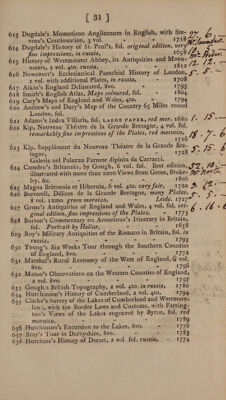 [ 31 ]
613 Dugdale's Monasticon Anglicanum in English, with Ste-
vens's Continuation, 3 vol. 1718
614 Dugdale's History of St. Paul's, fol. original edition, very
fine impressions, in russia, 1658
615 History of Westminster Abbey, its Antiquities and Monu-
ments, 2 vol. 4to. russia, 1812
616 Newcourt's Ecclesiastical Parochial History of London,
2 vol. with additional Plates, in russia, 1708
617 Aikin's England Delineated, 8vo. 1795
618 Smith's English Atlas, Maps coloured, fol. 1804
619 Cary's Maps of England and Wales, 4to. 1794
620 Andrew's and Dury's Map of the Country 65 Miles round
London, fol.
621 Adam's Index Villaris, fol. LARGE PAPER, red mor. 1680
622 Kip, Nouveau Théatre de la Grande Bretagne, 4 vol. fol.
remarkably fine impressions of the Plates, red morocco,
1715
623 Kip, Supplément du Nouveau Théatre de la Grande Bre-
tagne, 1728
Galeria nel Palazzo Farnese dipinta da Carracci.
624 Camden's Britannia, by Gough, 6 vol. fol. Best edition,
illustrated with more than 2000 Views from Grose, Stuke-
ley, &c. 1806
625 Magna Britannia et Hibernia, 6 vol. 4to. very fair, 1720
626 Beverell, Délices de la Grande Bretagne, many Plates,
8 vol. 12mo. green morocco, Leide. 1727
627 Grose's Antiquities of England and Wales, 4 vol. fol. ori-
ginal edition, fine impressions of the Plates, 1773
628 Burton's Commentary on Antoninus's Itinerary in Britain,
fol. Portrait by Hollar, 1658
629 Roy's Military Antiquities of the Romans in Britain, fol. in
russia, 1793
630 Young's Six Weeks Tour through the Southern Counties
of England, 8vo. 1772
631 Marshal's Rural Economy of the West of England, 2 vol.
8vo. 1796
632 Maton's Observations on the Western Counties of England,
2 vol. 8vo. 1797
633 Gough's British Topography, 2 vol. 4to. in russia, 1780
634 Hutchinson's History of Cumberland, 2 vol. 4to. 1794
635 Clarke's Survey of the Lakes of Cumberland and Westmore-
land, with the Border Laws and Customs, with Farring-
ton's Views of the Lakes engraved by Byrne, fol. red
morocco, 1789
636 Hutchinson's Excursion to the Lakes, 8vo. 1776
637 Bray's Tour in Derbyshire, 8vo. 1783
638 Hutchins's History of Dorset, 2 vol. fol. russia, 1774